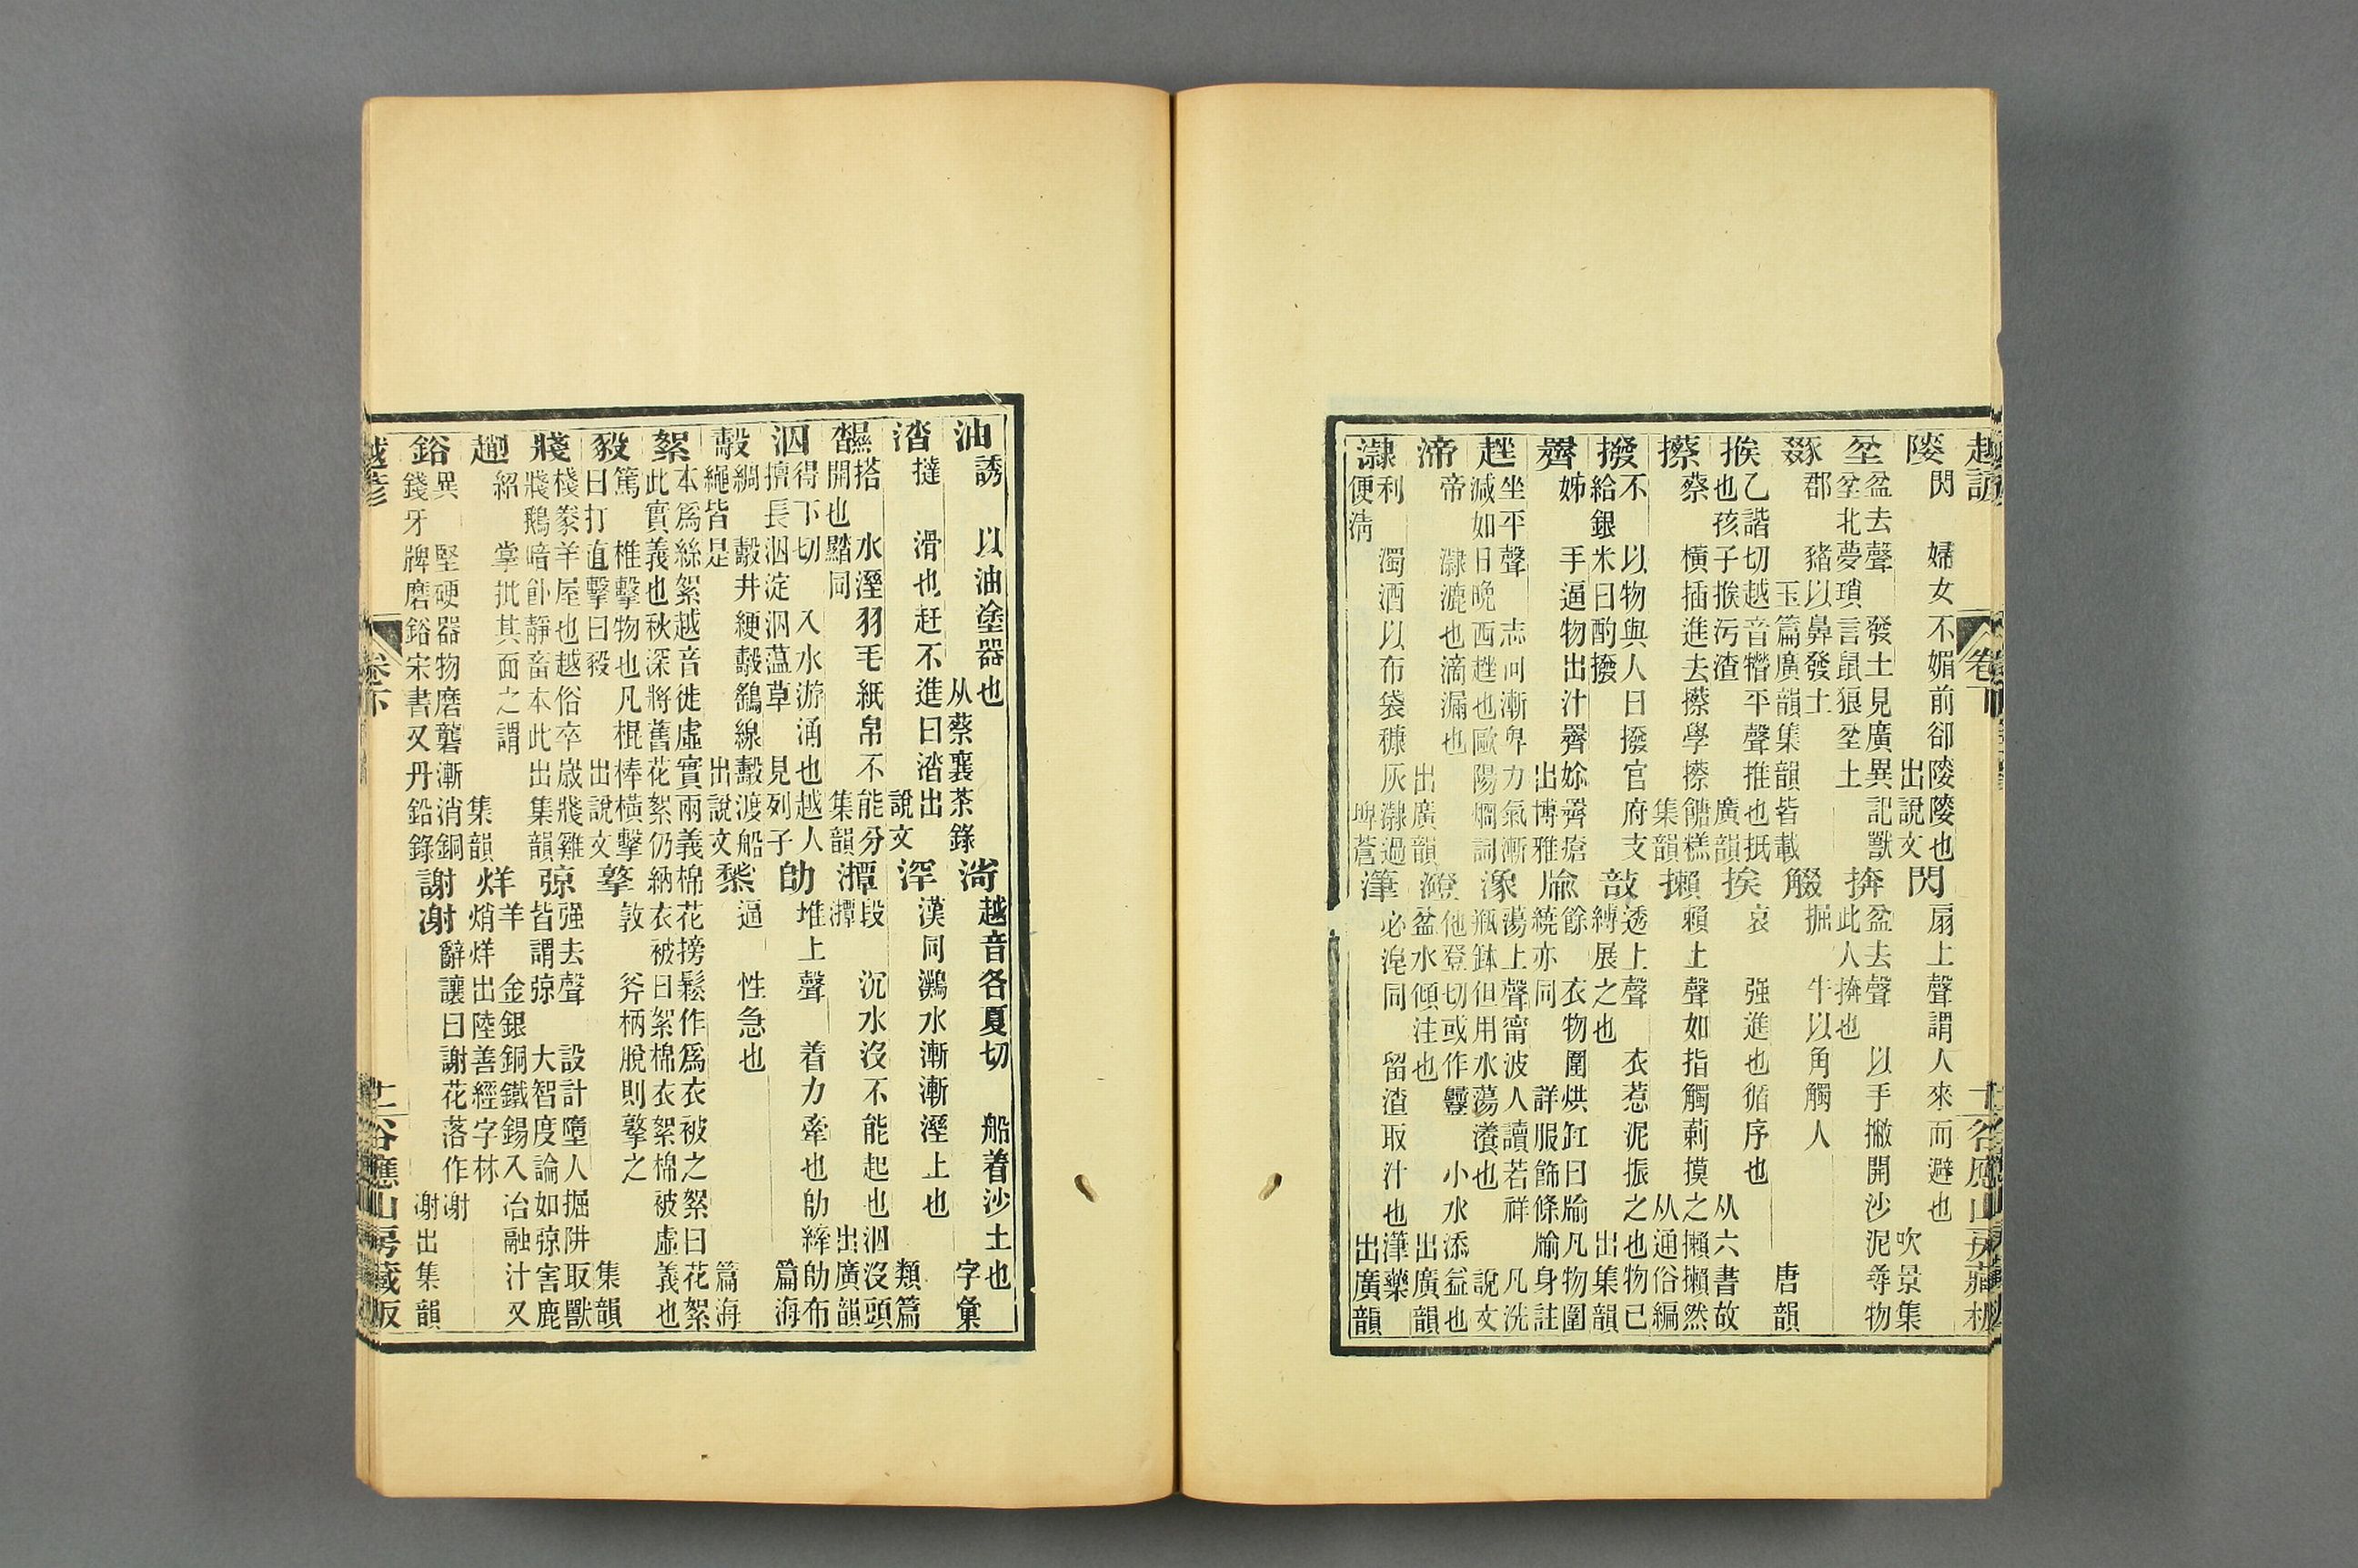 越諺 卷下 十二 谷應山房藏板
閃 婦女不媚前卻㑣㑣也 出說文
閃 扇上聲謂人來而避也 吹景集
坌 盆去聲 發土見廣異記獸坌北夢瑣言鼠狼坌土
盆去聲 以手撇開沙泥尋物此人㨧也
郡 豬以鼻發土 玉篇廣韻集韻皆載
掘 牛以角觸人 唐韻
挨 乙諧切越音㦣平聲推也抵也孩子挨污渣 廣韻
挨 哀 强進也循序也 从六書故
攃 蔡 橫插進去攃學攃餹糕 集韻
攋 賴上聲如指觸莿摸之攋攋然 从通俗編
撥 不 以物與人曰撥官府支給銀米曰酌撥
敨 透上聲 衣惹泥振之也物已縛展之也 出集韻
姊 手逼物出汁 出博雅
餘 衣物圍烘缸曰牏凡物圍繞亦同 詳服飾條牏身註
坐平聲 志向漸卑力氣漸減如日晚西矬也歐陽烱詞
潒 蕩上聲甯波人讀若祥 凡洗瓶缽但用水蕩瀁也 說文
渧 帝 㵧漉也滴漏也 出廣韻
他登切或作 小水添益也盆水傾注也 出廣韻
利 濁酒以布袋糠灰 過便淸 埤蒼
潷 必 同 留渣取汁也潷藥 出廣韻
油 誘 以油塗器也 从蔡襄茶錄
越音各夏切 船着沙土也 字彙
涾 撻 滑也赶不進曰涾 出說文
漢同灘水漸漸溼上也 類篇
搭 水溼羽毛紙帛不能分開也 同 集韻
潭 段 沉水沒不能起也泅沒頭潭 出廣韻
泅 得下切 入水游涌也越人擅長泅淀泅薀草 見列子
堆上聲 着力牽也 布 篇海
綢 井綆 鷂線 渡船繩皆是 出說文
逼 性急也 篇海
絮 本爲絲絮越音徙虛實兩義棉花搒鬆作爲衣被之絮曰花絮此實義也秋深將舊花絮仍納衣被曰絮棉衣絮棉被虛義也
毅 篤 椎擊物也凡棍棒橫擊曰打直擊曰毅 出說文
撉 敦 斧柄脫則撉之 集韻
棧 豢羊屋也越俗卒歲 雞 鵝暗卧靜畜本此 出集韻
弶 强去聲 設計墮人掘阱取獸皆謂弶 大智度論如弶害鹿
紹 掌批其面之謂 集韻
烊 羊 金銀銅鐵錫入冶融汁又焇烊出陸善經字林
鋊 異 堅硬器物磨礲漸消銅錢牙牌磨鋊宋書又丹鉛錄
謝 辭讓曰謝花落作 出集韻
越諺 卷下 十二 谷應山房藏板